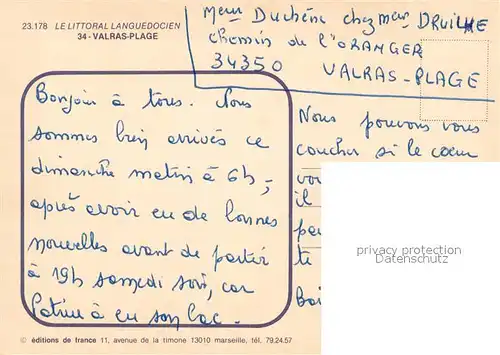 23.178 LE LITTORAL LANGUEDOCIEN
34 - VALRAS-PLAGE
Meur Duchêne chez meur DRUILHE
chemin de l'ORANGER
34350 VALRAS-PLAGE
Bonjour à tous. Nous
sommes bien arrivés ce
dimanche matin à 6h,
après avoir eu de bonnes
nouvelles avant de partir
à 19h samedi soir, car
Patrice à eu son bac.
Nous pouvons vous
coucher si le coeur
il
te
privacy protection
Datenschutz
© éditions de france 11, avenue de la timone 13010 marseille, tél. 79.24.57